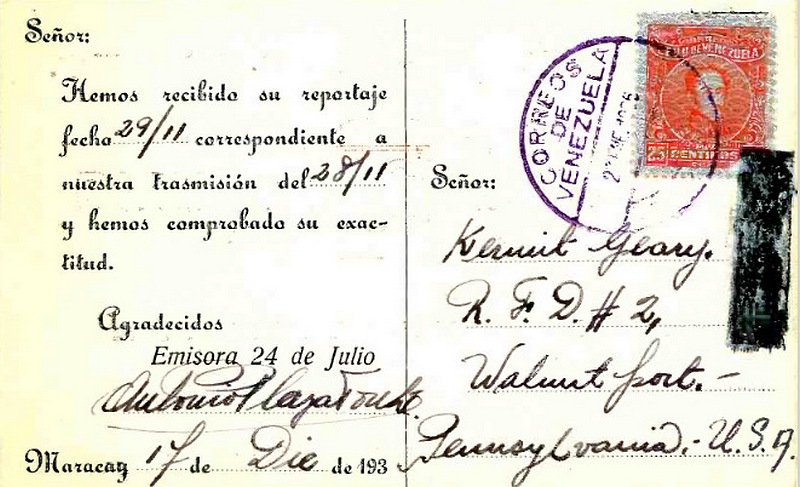 Señor:
Hemos recibido su reportaje
fecha 29/11 correspondiente a
nuestra trasmisión del 28/11
y hemos comprobado su exac-
titud.
Agradecidos
Emisora 24 de Julio
Antonio Plaza
Maracay 17 de Dic de 193
CORREOS
DE
VENEZUELA
EE.UU. DE VENEZUELA
25 CENTIMOS
Señor:
Kermit Geary.
R. F. D. # 2,
Walnut port. -
Pennsylvania. - U. S. A.